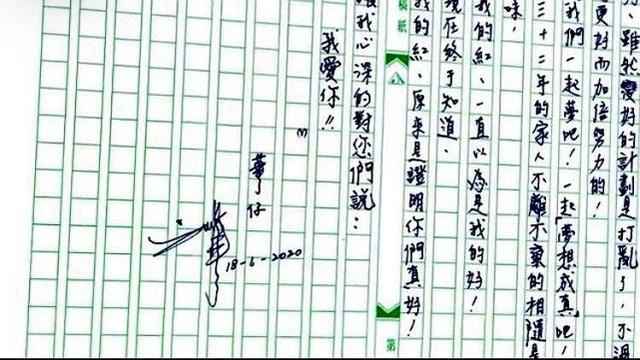 、雖然變好的計劃是打亂了,不過
更好而加倍努力的!
我們一起夢吧!一起「夢想成真」吧!
三十二年的家人不離不棄的相隨是
味,
我的紅、一直以為是我的好!
現在終于知道、
稿紙
第
我的紅、原來是證明你們真好!
我心深的對您們說:
我愛你!!
華仔
18-6-2020